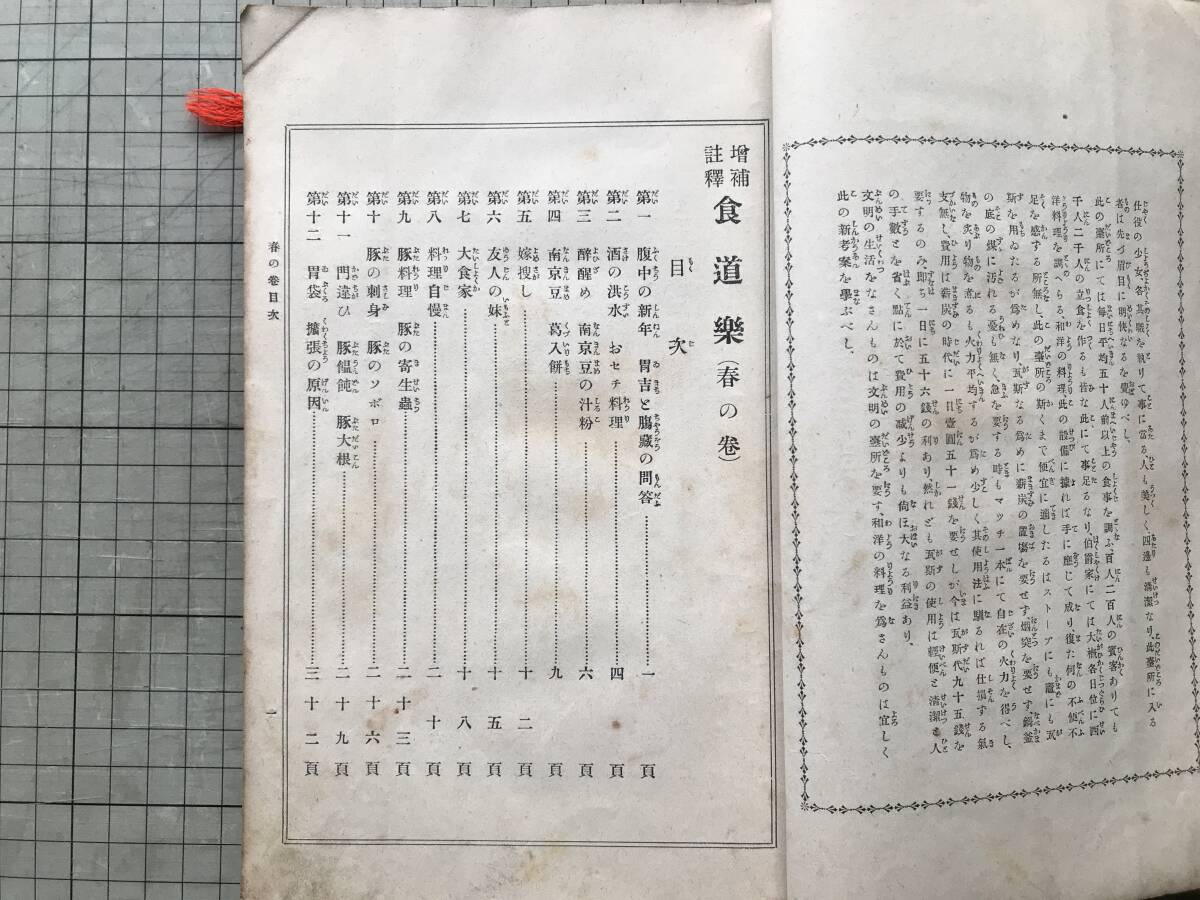 任役の少女、各其職を執りて事に當る、人も美しく四邊も淸潔なり、此臺所に入る
者は先づ眉目に明快なるを覺ゆべし、
此の臺所にては每日平均五十人前以上の食事を調ふ、百人二百人の賓客ありても
千人二千人の立食を作るも皆な此にて事足るなり伯爵家にては大槪各日位に西
洋料理を調へらる、和洋の料理、此の設備に據れば手に應じて成り、復た何の不便不
足を感ずる所無し、此の臺所の斯くまで便宜に適したるはストーブにも竈にも瓦
斯を用ゐたるが爲めなり瓦斯なる爲めに薪炭の置塲を要せず烟突を要せず、鍋釜
の底の煤に汚れる憂も無く、急を要する時もマッチ一本にて自在の火力を得べし、
物を炙り物を煮るも火力平均するが爲め少しく其使用法に馴るれば仕損ずる氣
支無し、費用は薪炭の時代に一日壹圓五十一錢を要せしが今は瓦斯代九十五錢を
要するのみ、即ち一日に五十六錢の利あり、然れども瓦斯の使用は輕便と淸潔と人
の手數とを省く點に於て費用の减少よりも尙ほ大なる利益あり、
文明の生活をなさんものは文明の臺所を要す、和洋の料理を爲さんものは宜しく
此の新考案を學ぶべし、
增補
註釋
食道樂(春の卷)
目次
第一 腹中の新年 胃吉と膓藏の問答 一頁
第二 酒の洪水 おセチ料理 四頁
第三 醉醒め 南京豆の汁粉 六頁
第四 南京豆 葛入餅 九頁
第五 嫁搜し 十二頁
第六 友人の妹 十五頁
第七 大食家 十八頁
第八 料理自慢 二十頁
第九 豚料理 豚の寄生蟲 二十三頁
第十 豚の刺身 豚のソボロ 二十六頁
第十一 門違ひ 豚饂飩 豚大根 二十九頁
第十二 胃袋 擴張の原因 三十二頁
春の卷目次
一